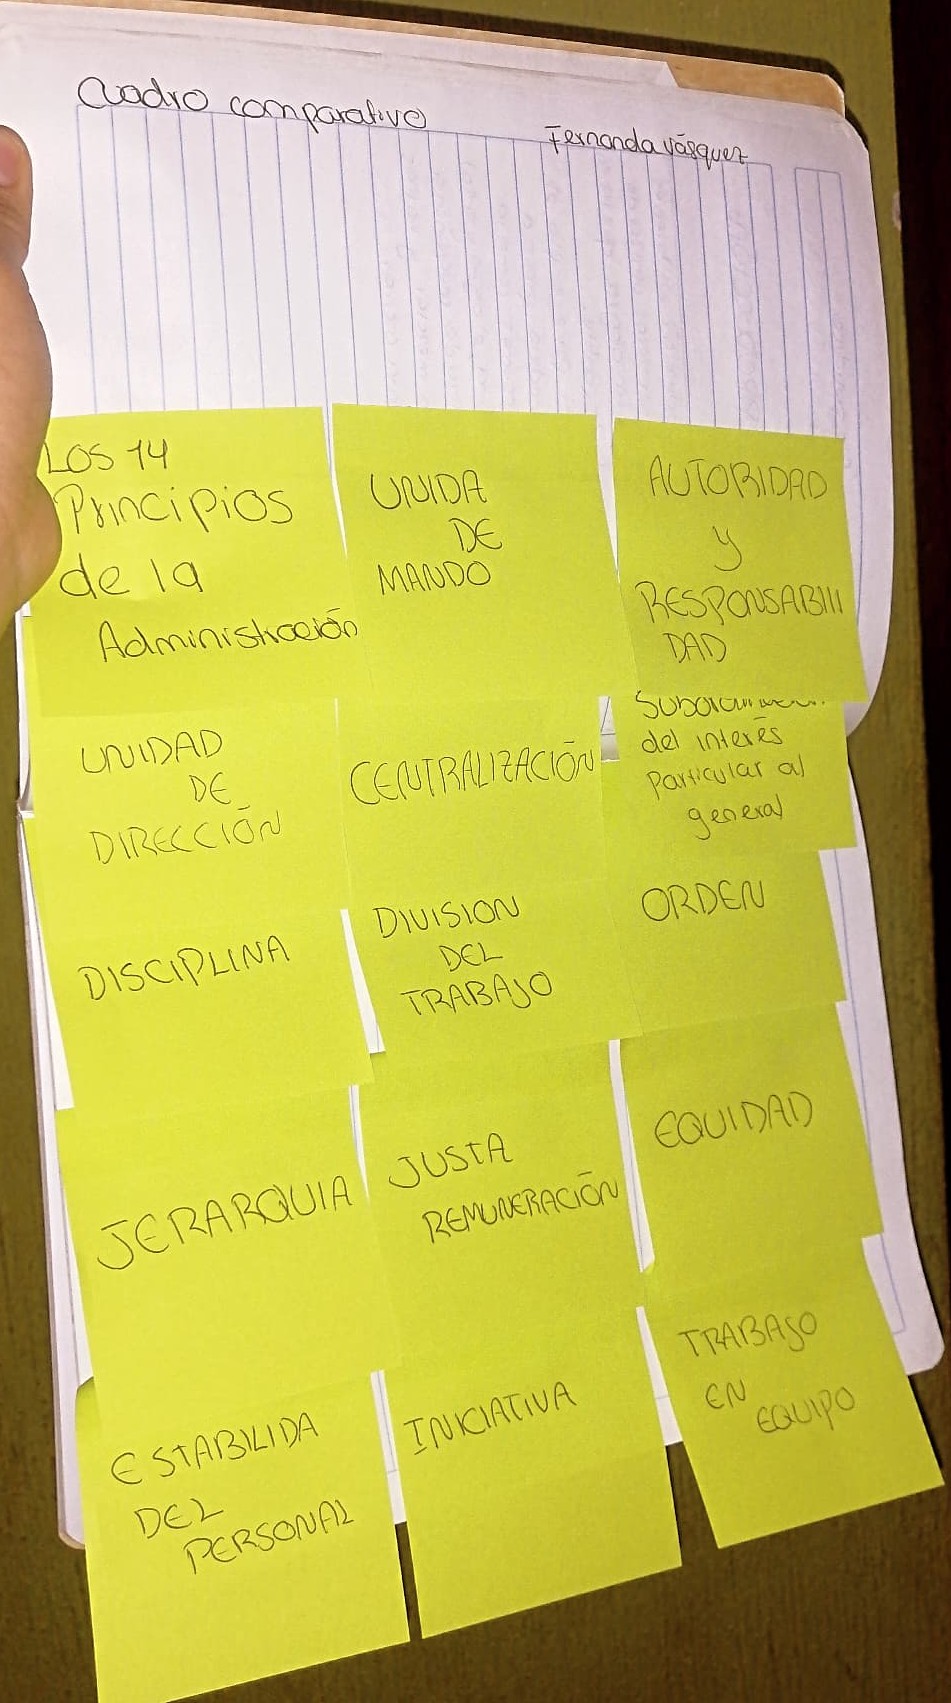 Cuadro comparativo
Fernanda Vásquez
LOS 14
Principios
de la
Administración
UNIDA
DE
MANDO
AUTORIDAD
y
RESPONSABILI
DAD
UNIDAD
DE
DIRECCIÓN
CENTRALIZACIÓN
del interés
particular al
general
DISCIPLINA
DIVISION
DEL
TRABAJO
ORDEN
JERARQUIA
JUSTA
REMUNERACIÓN
EQUIDAD
ESTABILIDA
DEL
PERSONAL
INICIATIVA
TRABAJO
EN
EQUIPO